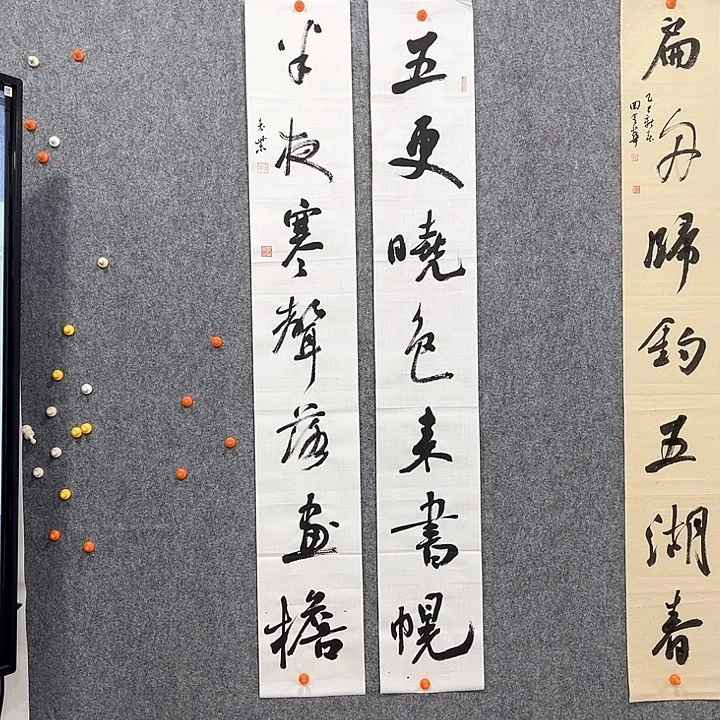 扁舟歸釣五湖春
乙巳新春
五更曉色来書幌
半夜寒聲落畫檐